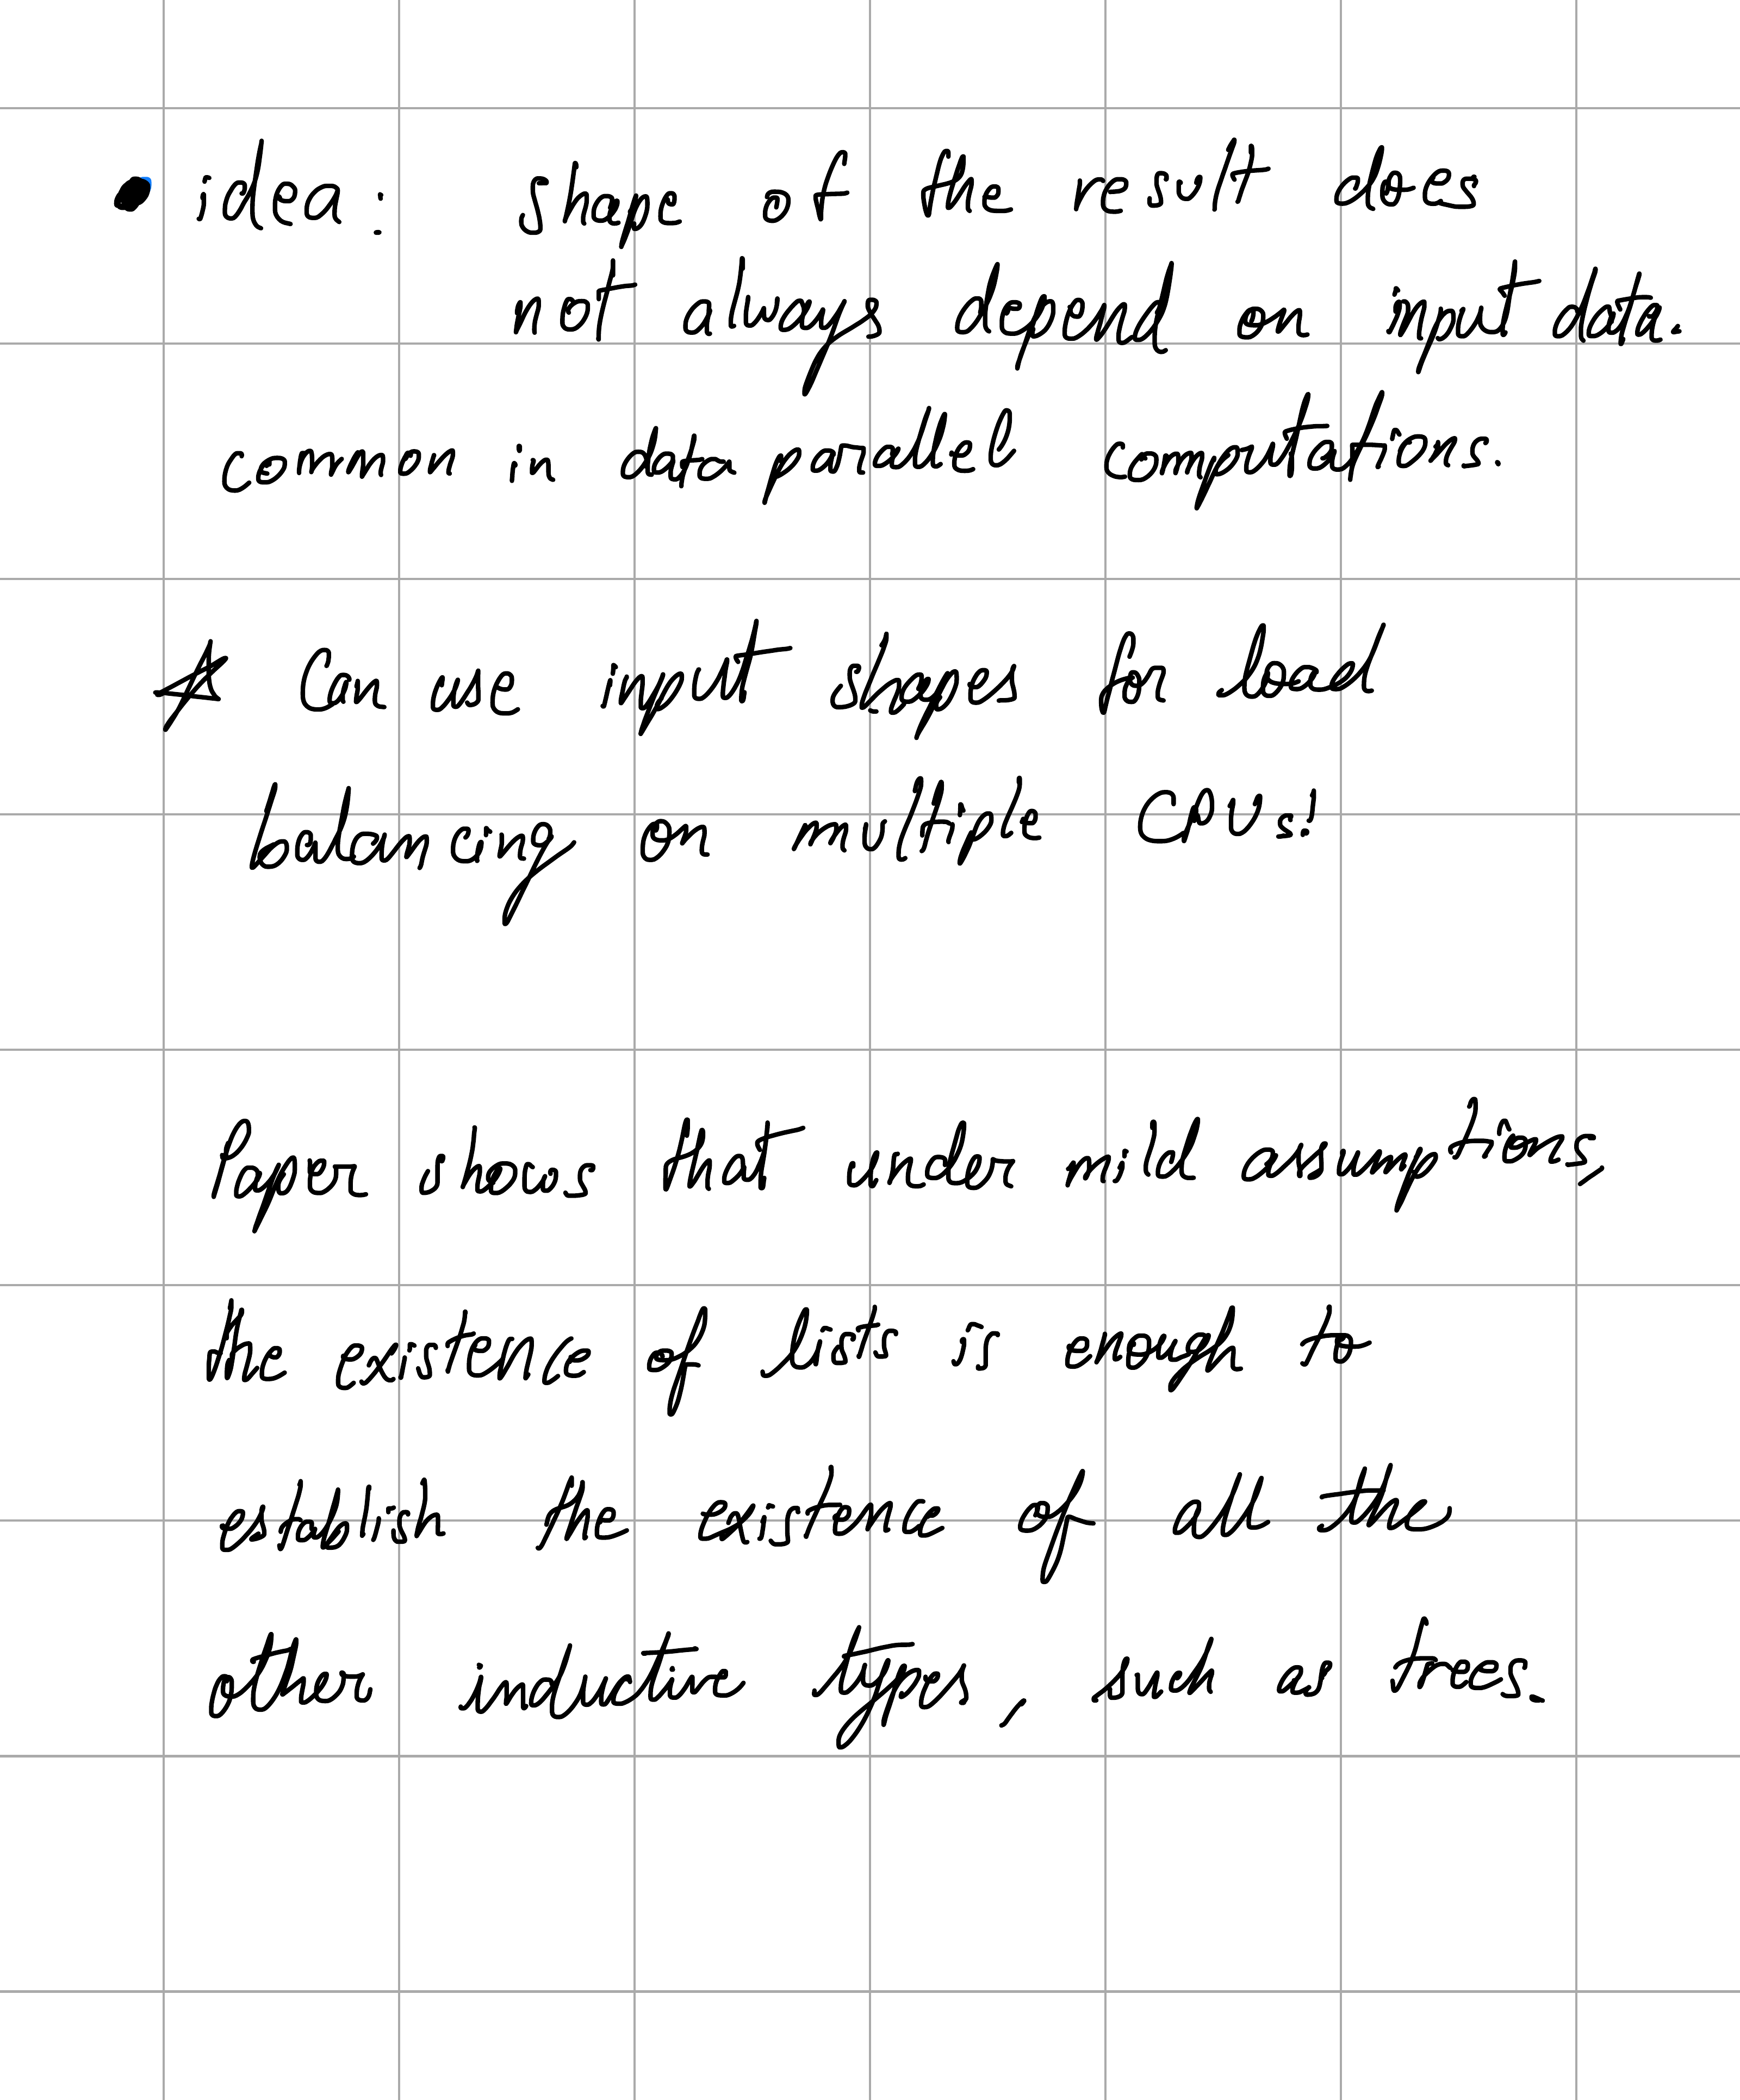 • idea: shape of the result does
not always depend on input data.
common in data parallel computations.
☆ Can use input shapes for load
balancing on multiple CPUs!
Paper shows that under mild assumptions,
the existence of lists is enough to
establish the existence of all the
other inductive types, such as trees.